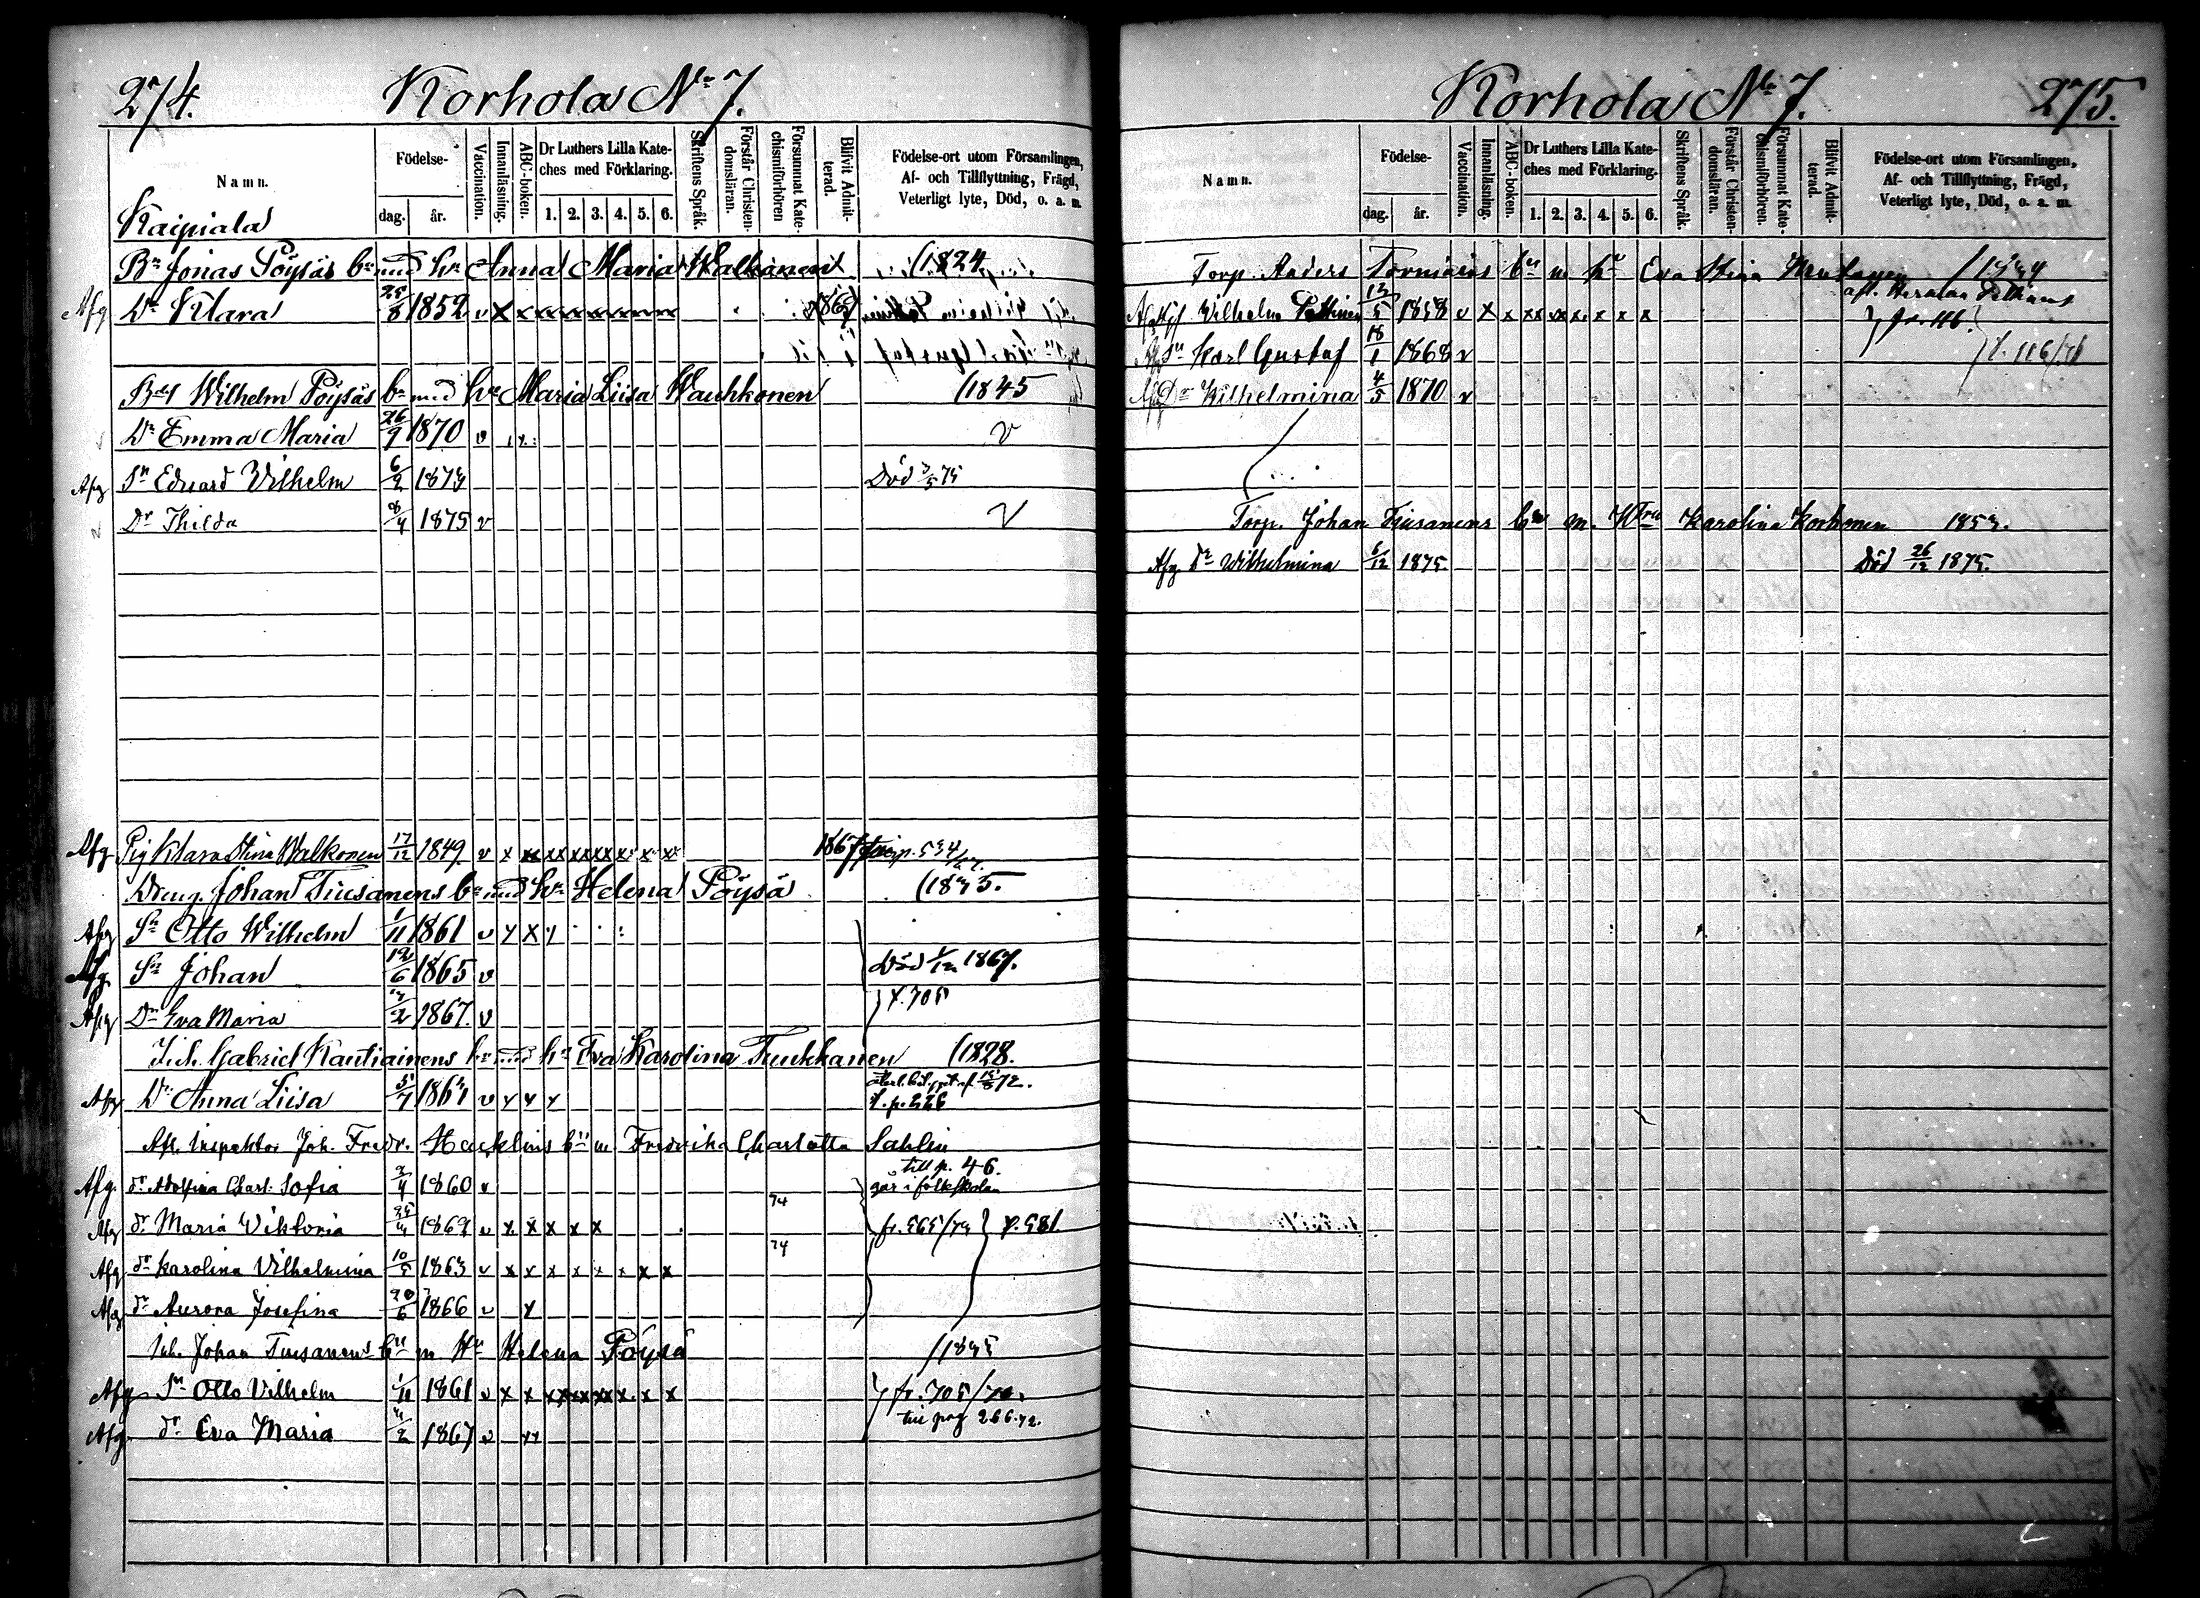 274. Korhola No 7.
Namn.
Kaipiala
Födelse-
dag. år.
Vaccination.
Innanläsning.
ABC-boken.
Dr Luthers Lilla Kate-
ches med Förklaring.
1. 2. 3. 4. 5. 6.
Skriftens Språk.
Förstår Christen-
domsläran.
Försummat Kate-
chismiförhören
Blifvit Admit-
terad.
Födelse-ort utom Församlingen,
Af- och Tillflyttning, Frägd,
Veterligt lyte, Död, o. a. m.
Bn Jonas Pöysäs bn med hu Anna Maria Walkonen (1824
Afg Dr Klara 25/8 1852 v x
Wilhelm Pöysäs bn med hu Maria Liisa Wauhkonen (1845
Dr Emma Maria 26/9 1870 v v
Afg Sn Edvard Vilhelm 6/2 1873 Död 3/5 75
Dr Thilda 8/4 1875 v v
Afg Pig Klara Stina Walkonen 17/12 1849 v x x xx xx xx x x x 1867
Dreng. Johan Tiusanens bn med hu Helena Pöysä (1835.
Afg Sn Otto Wilhelm 1/11 1861 v y x y
Afg Sn Johan 12/6 1865 v Död 1/12 1867.
Afg Dr Eva Maria 2 1867. v t. 705
Inh. Gabriel Kautiainens bn med hu Eva Karolina Tuukkanen (1828.
Afg Dr Anna Liisa 5/7 1861 v y y y t. p. 226
Afl. Inspektor Joh. Fredr. Hacklins bn m Fredrika Charlotta Sahlin
till p. 46.
Afg. dr Adolfina Charl. Sofia 1860 v går i folkskolan
74
Afg dr Maria Viktoria 1862 v x x x x x fr. 565/74 t. 581
74
Afg dr Karolina Vilhelmina 10/5 1863 v x x x x x x x x
Afg dr Aurora Josefina 20/6 1866 v y
Inh. Johan Tiusanens bn m Hu Helena Pöysä (1835
Afg Sn Otto Vilhelm 1/11 1861 v x x xx xx xx x. x x fr. 705/70.
till pag 266.72.
Afg dr Eva Maria 2 1867 v
Korhola No 7. 275.
Namn.
Födelse-
dag. år.
Vaccination.
Innanläsning.
ABC-boken.
Dr Luthers Lilla Kate-
ches med Förklaring.
1. 2. 3. 4. 5. 6.
Skriftens Språk.
Förstår Christen-
domsläran.
Försummat Kate-
chismiförhören.
Blifvit Admit-
terad.
Födelse-ort utom Församlingen,
Af- och Tillflyttning, Frägd,
Veterligt lyte, Död, o. a. m.
Torp. Anders Torniäis bn m hu Eva Stina
Vilhelm Pottinen 12/5 1858 v x x xx xx x. x x x fr. 116.
Sn Karl Gustaf 18/1 1868 v t. 116/71
Afg Dr Wilhelmina 4/5 1870 v
Torp. Johan Tiusanens bn m. Hstru Karolina Korhonen 1853.
Afg dr Wilhelmina 6/12 1875. Död 26/12 1875.